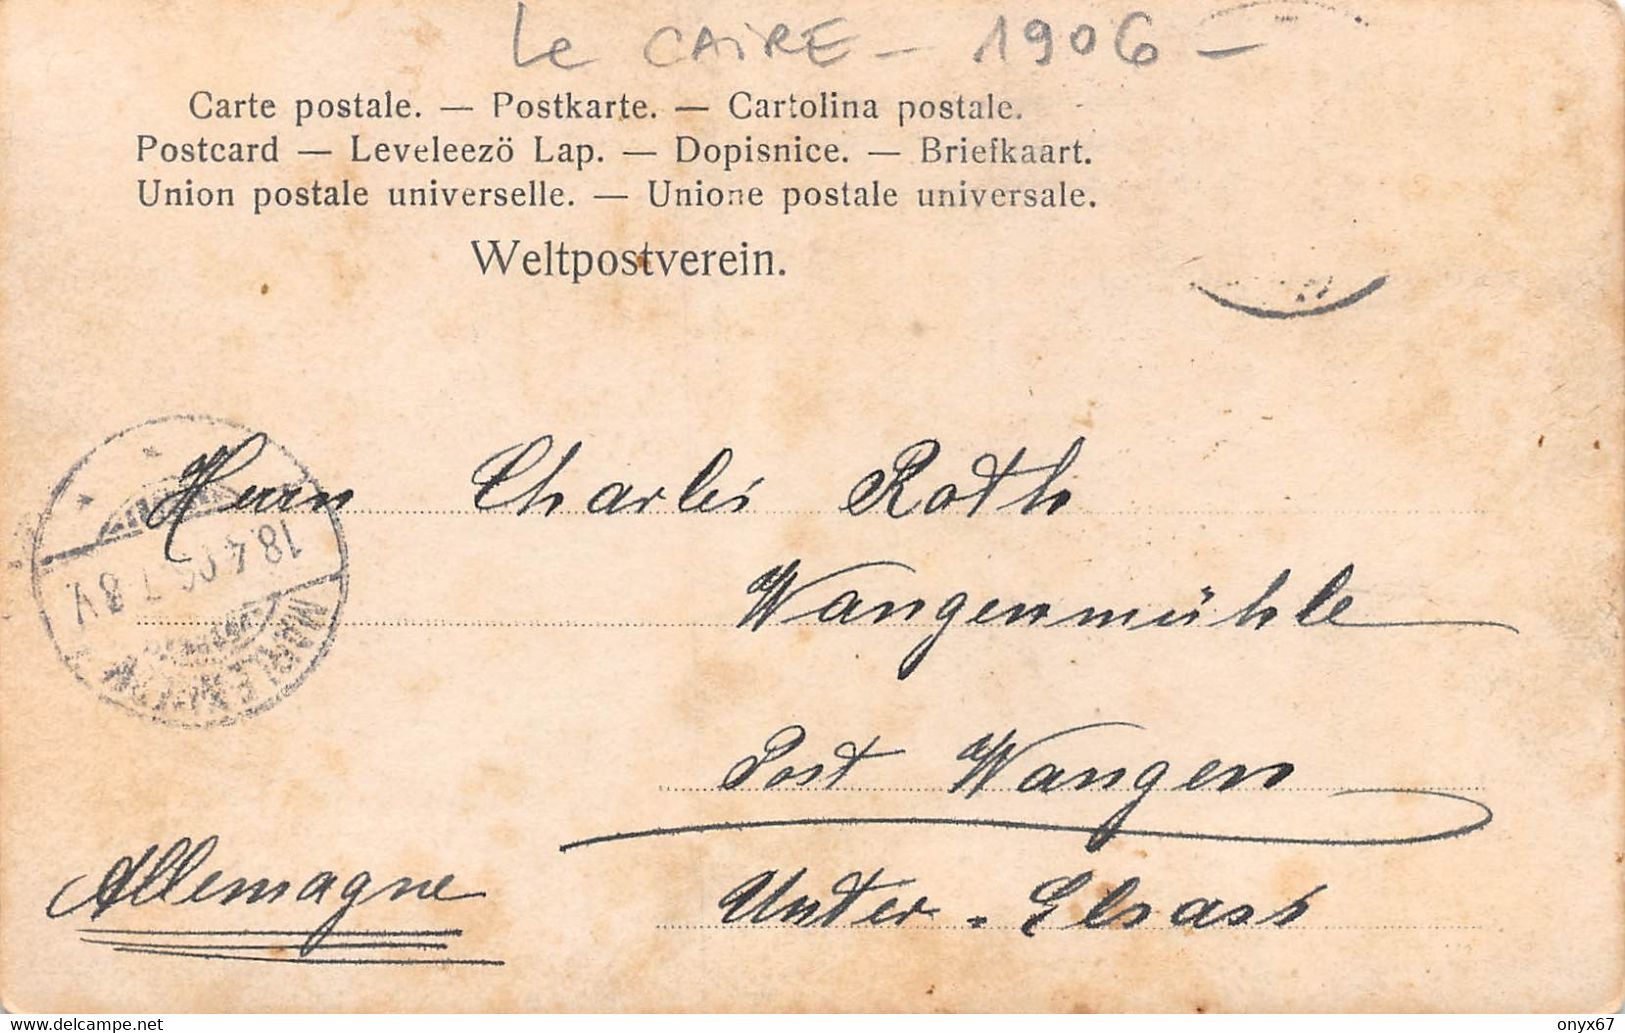 Le CAIRE - 1906 -
Carte postale. — Postkarte. — Cartolina postale.
Postcard — Leveleezö Lap. — Dopisnice. — Briefkaart.
Union postale universelle. — Unione postale universale.
Weltpostverein.
Herrn Charles Roth
Wangenmühle
Post Wangen
Unter-Elsass
Allemagne
18.4.06. 7-8 V.
delcampe.net
onyx67